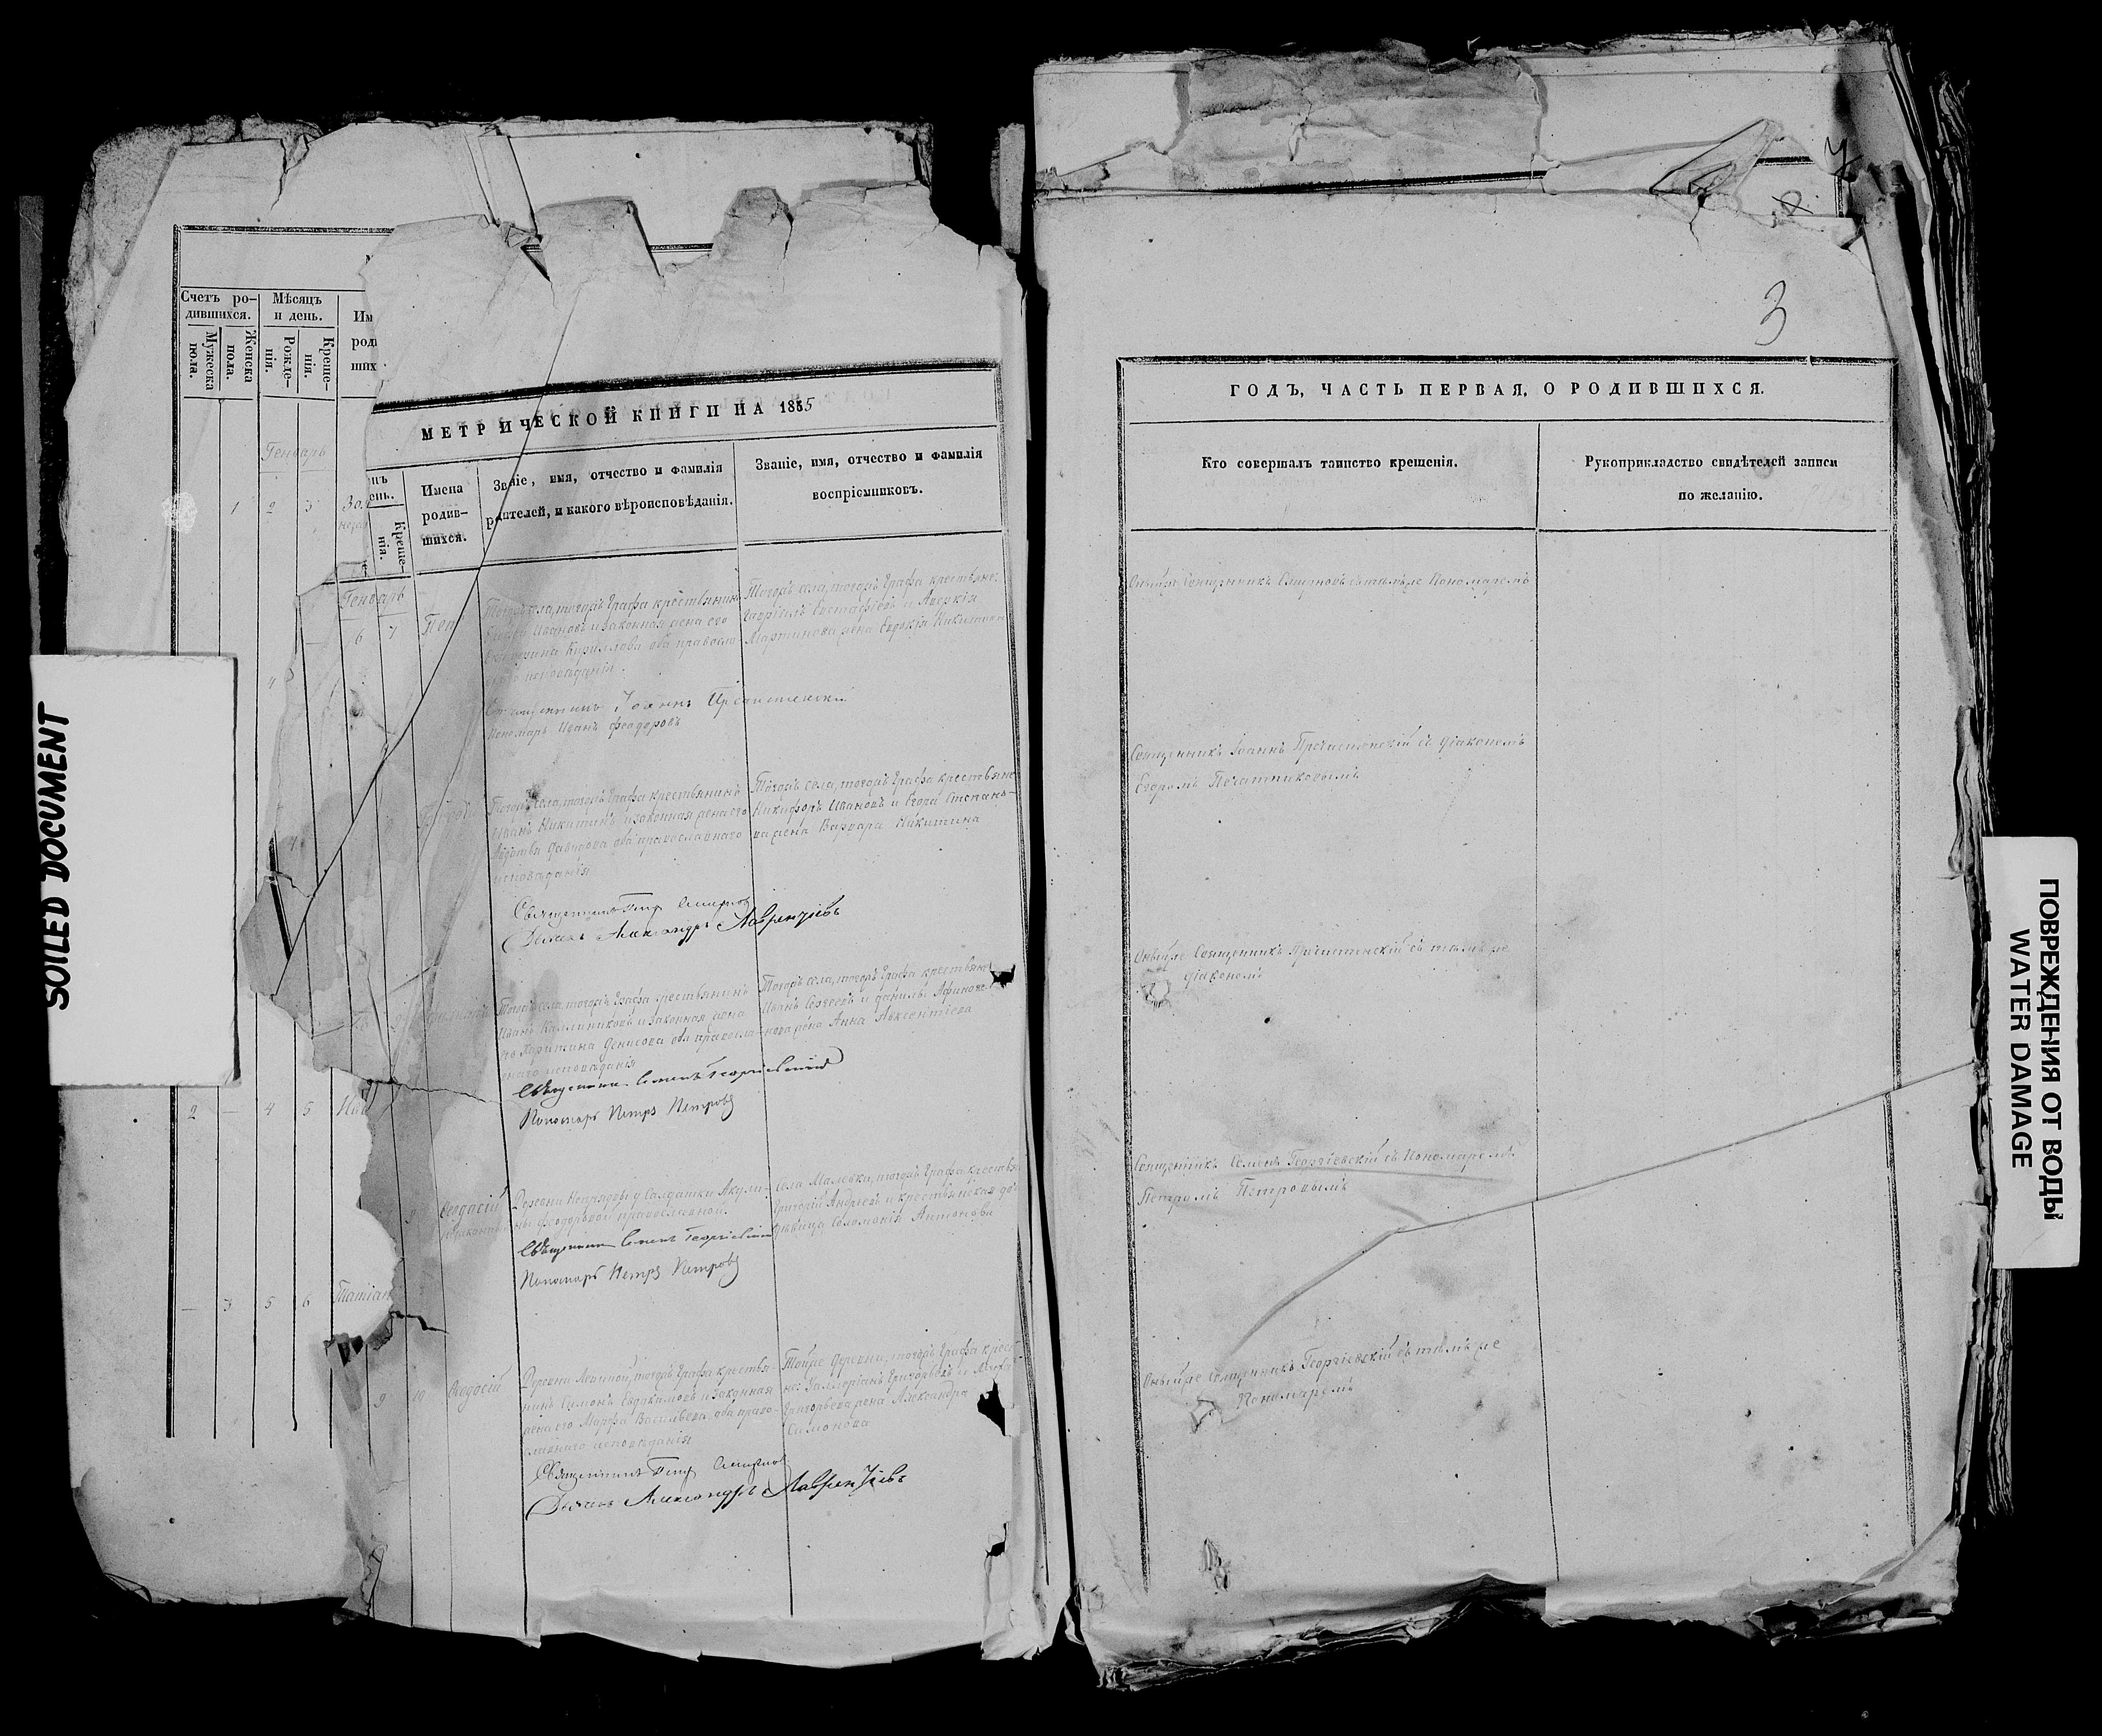 SOILED DOCUMENT
Счетъ ро-
дившихся.
Мужеска
пола.
Женска
пола.
Мѣсяцъ
и день.
Рожде-
нія.
Креше-
нія.
Им
род
ших
Генварь
1 2 3
2 — 4 5
— 3 5 6 Татіан
МЕТРИЧЕСКОЙ КНИГИ НА 1885
Креше-
нія.
Имена
родив-
шихся.
Званіе, имя, отчество и фамилія
родителей, и какого вѣроисповѣданія.
Званіе, имя, отчество и фамилія
воспріемниковъ.
Генварь
6 7
Тогожъ села, тогожъ Графа крестьянинъ
Ивановъ и законная жена его
Кириллова оба правосла-
исповѣданія.
Тогожъ села, тогожъ Графа крестьяне:
Гавріилъ Евстафіевъ и Аверкія
Мартинова жена Евдокія Никитина
Священникъ Іоаннъ Пречистенскій
Пономарь Иванъ Феодоровъ
Тогожъ села, тогожъ Графа крестьянинъ
Иванъ Никитинъ и законная жена его
Давидова оба православнаго
исповѣданія
Тогожъ села, тогожъ Графа крестьяне
Никифоръ Ивановъ и Егора Степано-
ва жена Варвара Никитина
Священникъ Петръ Смирнов
Дьяконъ Александръ Лаврентіевъ
Тогожъ села, тогожъ Графа крестьянинъ
Иванъ Каллиниковъ и законная жена
его Харитина Денисова оба правосла-
внаго исповѣданія
Тогожъ села, тогожъ Графа крестьяне
Иванъ Сергеевъ и Данилы Афиноге-
нова жена Анна Авксентіева
Священникъ Семенъ Георгіевскій
Пономарь Петръ Петровъ
9 Феодосій
незаконно
Деревни Непрядвы у Салдатки Акули-
ны Феодоровой православной.
села Малевки, тогожъ Графа крестьян
Григорій Андреевъ и крестьянская до
дѣвица Соломонія Антонова
Священникъ Семенъ Георгіевскій
Пономарь Петръ Петровъ
9 10 Феодосій
Деревни тогожъ Графа крестья-
нинъ Симонъ Евдокимовъ и законная
жена его Марфа Васильева, оба право-
славнаго исповѣданія
Тойже деревни, тогожъ Графа крест
не: Григорьевъ и
Григорьева жена Александра
Симонова
Священникъ Петръ Смирнов
Дьяконъ Александръ Лаврентіевъ
3
ГОДЪ, ЧАСТЬ ПЕРВАЯ, О РОДИВШИХСЯ.
Кто совершалъ таинство крещенія.
Рукоприкладство свидѣтелей записи
по желанію.
Оныйже Священникъ Смирновъ съ тѣмъже Пономаремъ
Священникъ Іоаннъ Пречистенскій съ Діакономъ
Егоромъ Печатниковымъ
Оныйже Священникъ Пречистенскій съ тѣмъ же
Діакономъ
Священникъ Семенъ Георгіевскій съ Пономаремъ
Петромъ Петровымъ
Оныйже Священникъ Георгіевскій съ тѣмъ же
Пономаремъ
ПОВРЕЖДЕНИЯ ОТ ВОДЫ
WATER DAMAGE